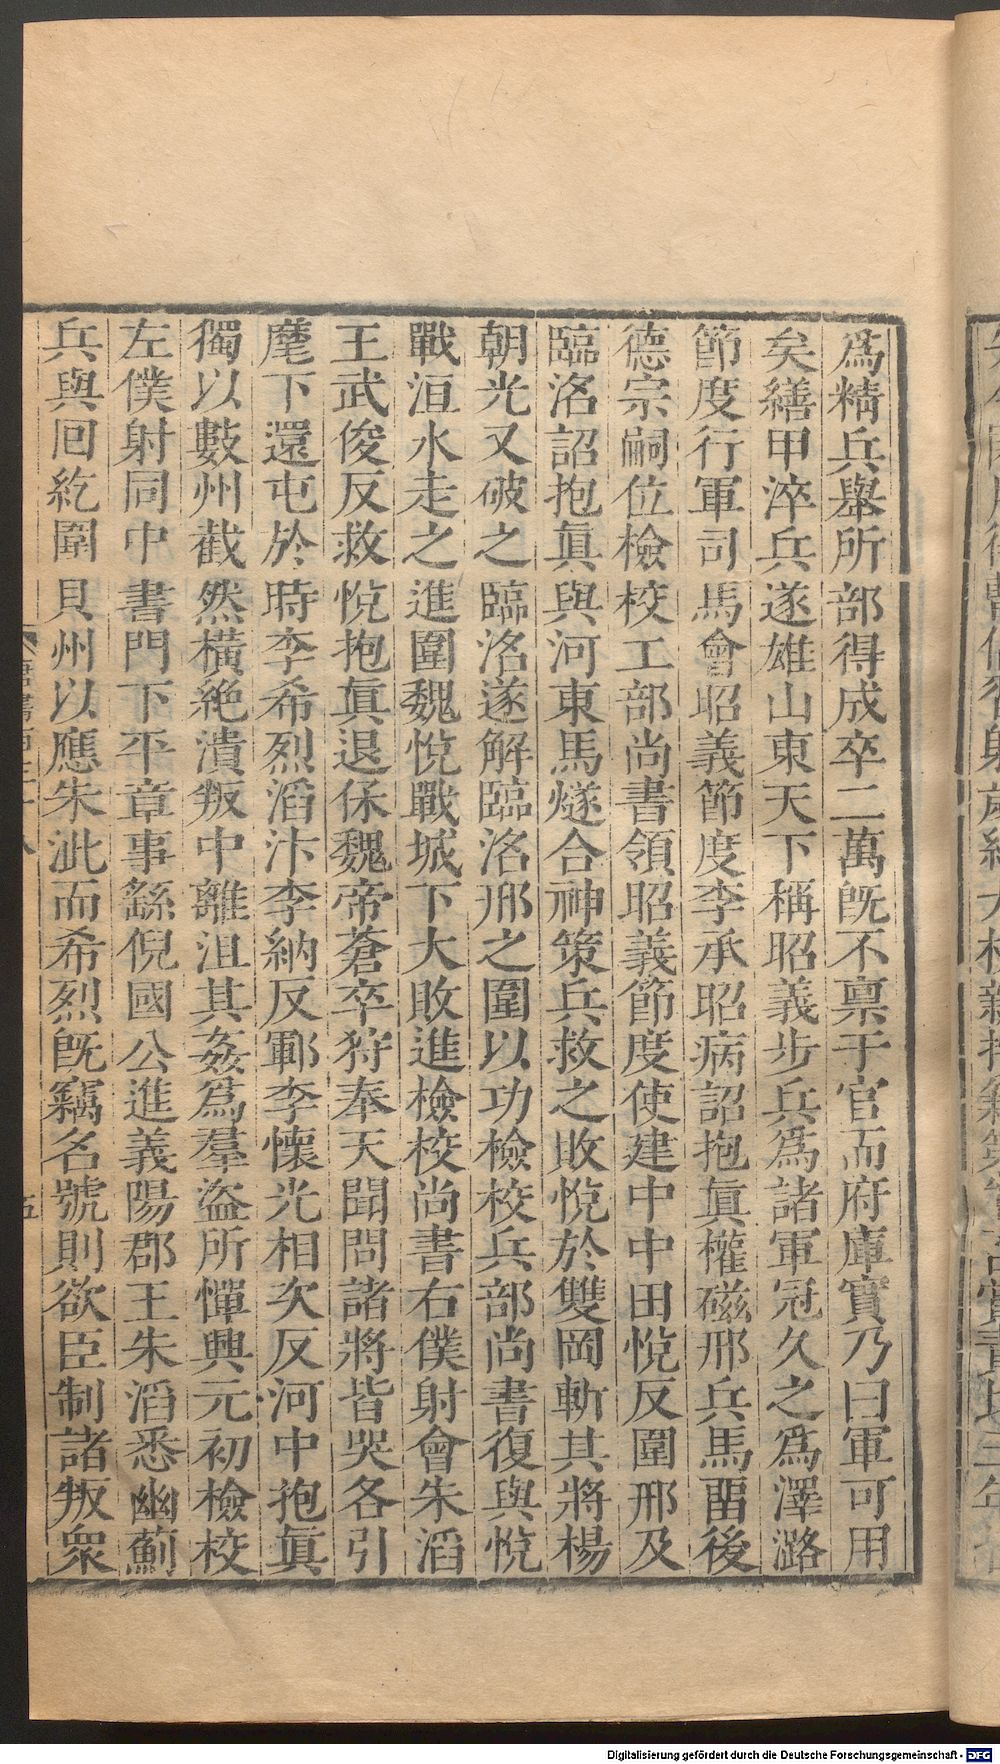 爲精兵舉所部得成卒二萬旣不稟于官而府庫實乃曰軍可用
矣繕甲淬兵遂雄山東天下稱昭義步兵爲諸軍冠久之爲澤潞
節度行軍司馬會昭義節度李承昭病詔抱眞權磁邢兵馬畱後
德宗嗣位檢校工部尚書領昭義節度使建中中田悅反圍邢及
臨洺詔抱眞與河東馬燧合神策兵救之敗悅於雙岡斬其將楊
朝光又破之臨洺遂解臨洺邢之圍以功檢校兵部尚書復與悅
戰洹水走之進圍魏悅戰城下大敗進檢校尚書右僕射會朱滔
王武俊反救悅抱眞退保魏帝蒼卒狩奉天聞問諸將皆哭各引
麾下還屯於時李希烈滔汴李納反鄆李懷光相次反河中抱眞
獨以數州截然橫絶潰叛中離沮其姦爲羣盜所憚興元初檢校
左僕射同中書門下平章事繇倪國公進義陽郡王朱滔悉幽薊
兵與回紇圍貝州以應朱泚而希烈旣竊名號則欲臣制諸叛衆
唐書
五
Digitalisierung gefördert durch die Deutsche Forschungsgemeinschaft - DFG